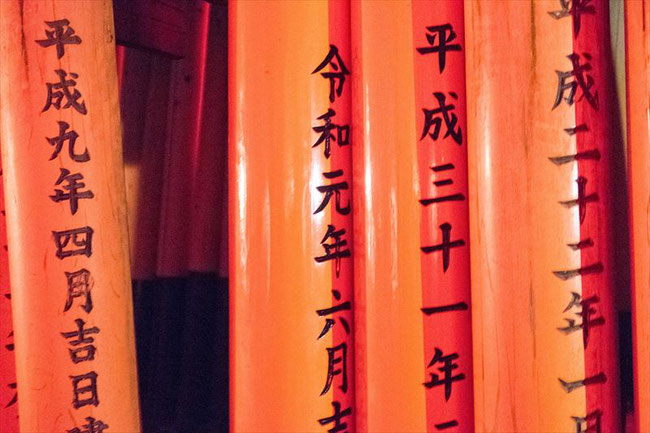 平成二十二年一
平成三十一年
令和元年六月吉
平成九年四月吉日